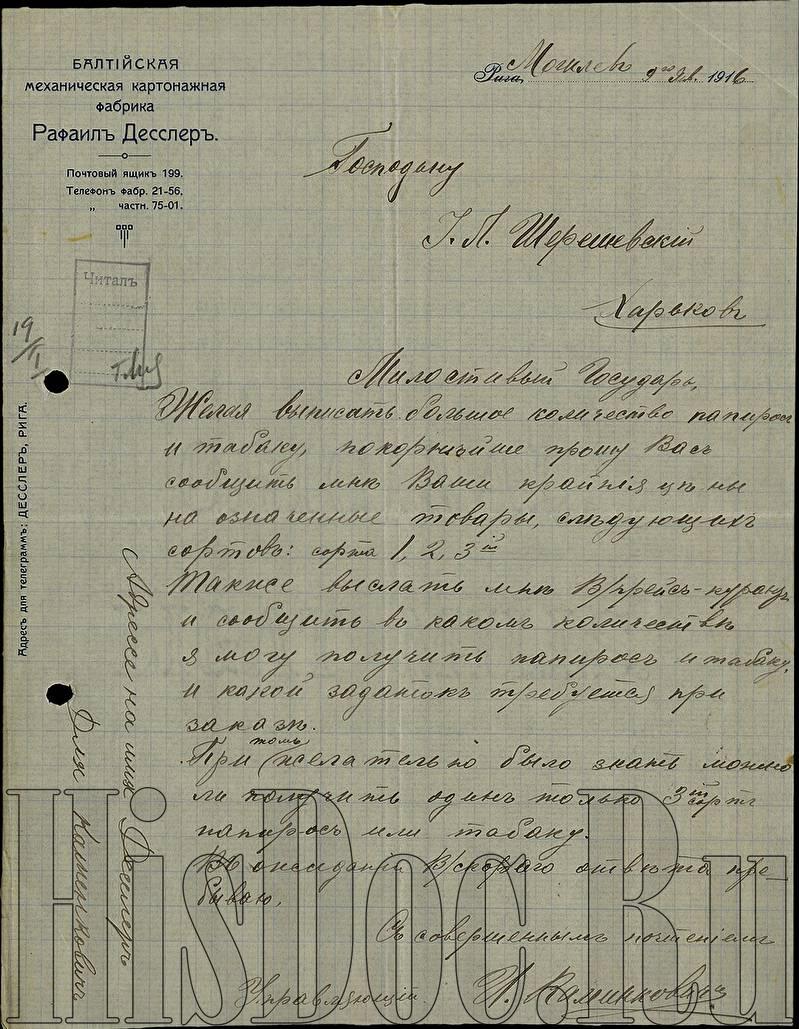 БАЛТІЙСКАЯ
механическая картонажная
фабрика
Рафаилъ Десслеръ.
Почтовый ящикъ 199.
Телефонъ фабр. 21-56.
„ частн. 75-01.
Рига, Могилевъ 9го Янв. 1916
Господину
І. Л. Шерешевскій
Харьковъ
Читалъ
19/I
Милостивый Государь,
Желая выписать большое количество папиросъ
и табаку, покорнѣйше прошу Васъ
сообщить мнѣ Ваши крайнія цѣны
на означенные товары, слѣдующихъ
сортовъ: сорта 1, 2, 3й
Также выслать мнѣ В/прейсъ-курантъ
и сообщить въ какомъ количествѣ
я могу получить папиросъ и табаку,
и какой задатокъ требуется при
заказѣ.
При томъ желательно было знать можно
ли получить одинъ только 3й сортъ
папиросъ или табаку.
Въ ожиданіи В/скораго отвѣта пре-
бываю,
Съ совершеннымъ почтеніемъ
Управляющій
Каменковичъ
Адресъ для телеграммъ: ДЕССЛЕРЪ, РИГА.
Адрессе на имя Десслеръ
Для Каменковичъ
HisDoc.Ru